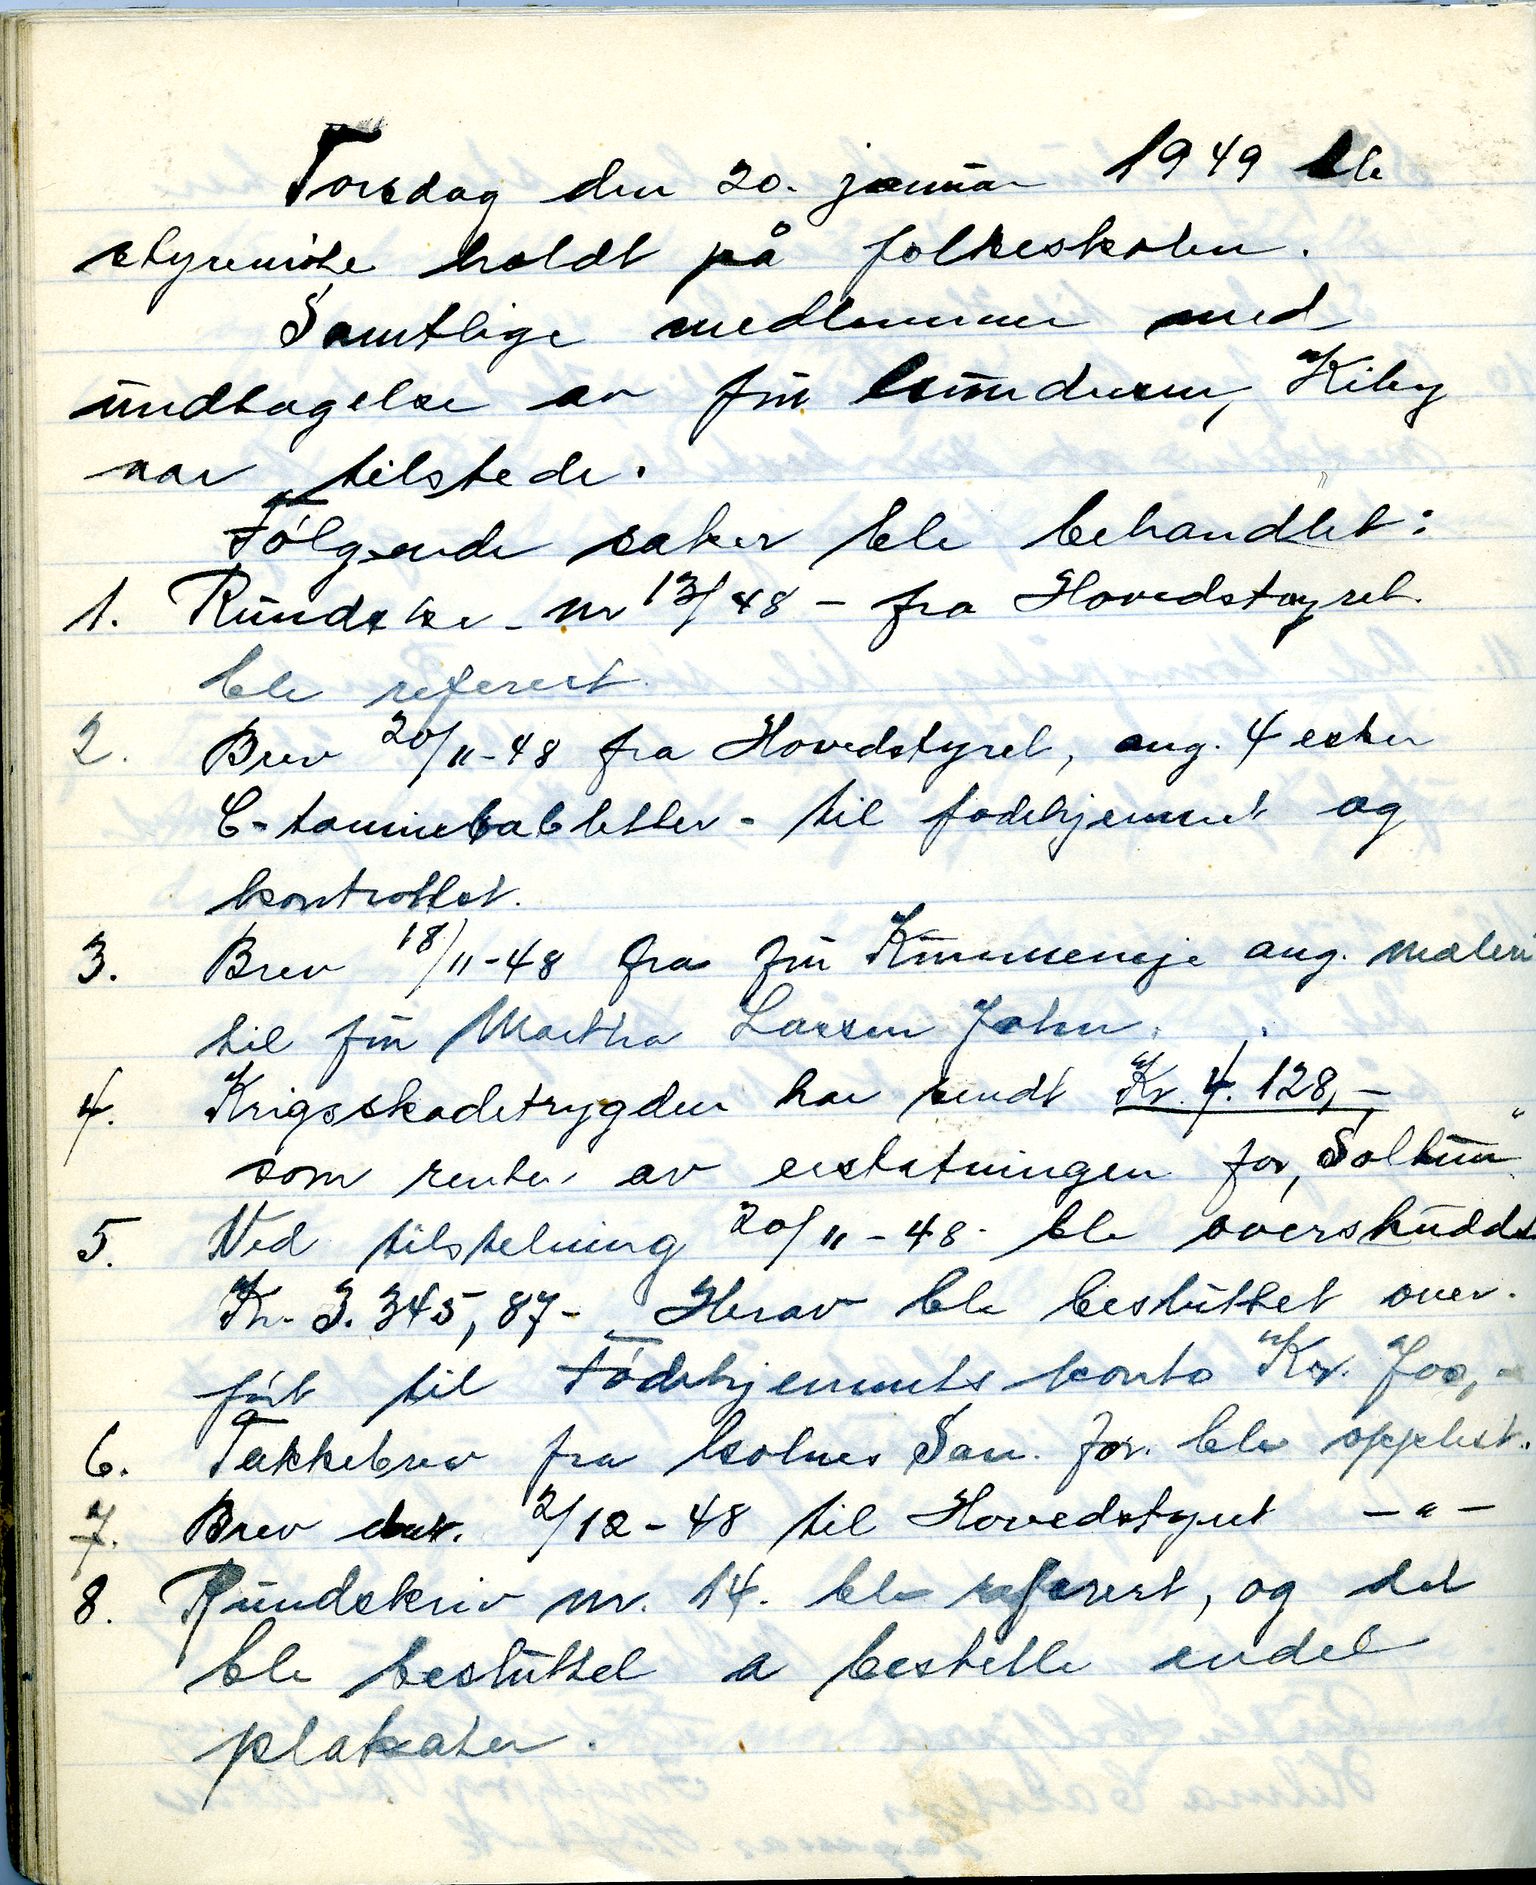 Torsdag den 20. januar 1949 ble
styremøte holdt på folkeskolen.
Samtlige medlemmer med
undtagelse av fru Kiby
var tilstede.
Følgende saker ble behandlet:
1. Rundskr. nr 13/48 - fra Hovedstyret
ble referert.
2. Brev 20/11-48 fra Hovedstyret, ang. 4 esker
C- til fødehjemmet og
kontrollet.
3. Brev 18/11-48 fra fru ang.
til fru Martha Larsen John.
4. Krigsskadetrygden har sendt Kr. 4.128,-
som renter av erstatningen for „Soltun"
5. Ved tilstelning 20/11-48- ble overskudds
Kr. 3.345,87- Herav ble besluttet over-
ført til Fødehjemmets konto Kr.
6. Takkebrev fra San. for. ble opplest.
7. Brev 2/12-48 til Hovedstyret -"-
8. Rundskriv nr. 14. ble referert, og det
ble besluttet a bestille endel
plakater.